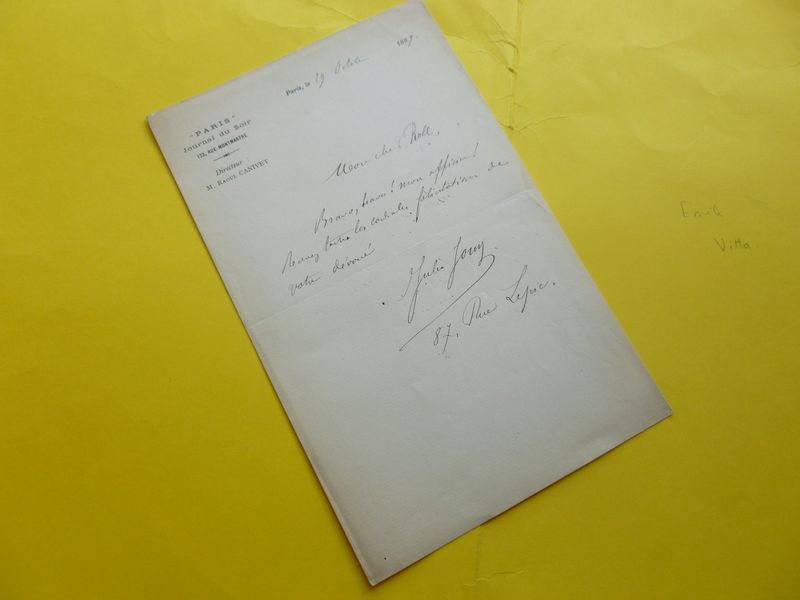 Paris, le 19 Octobre 1889.
"PARIS"
Journal du Soir
123, RUE MONTMARTRE
Directeur :
M. RAOUL CANIVET
Mon cher Roll,
Bravo, bravo! mon officier!
Recevez toutes les cordiales félicitations de
votre dévoué
Jules Jouy.
87, Rue Lepic.
Emile
Vitta